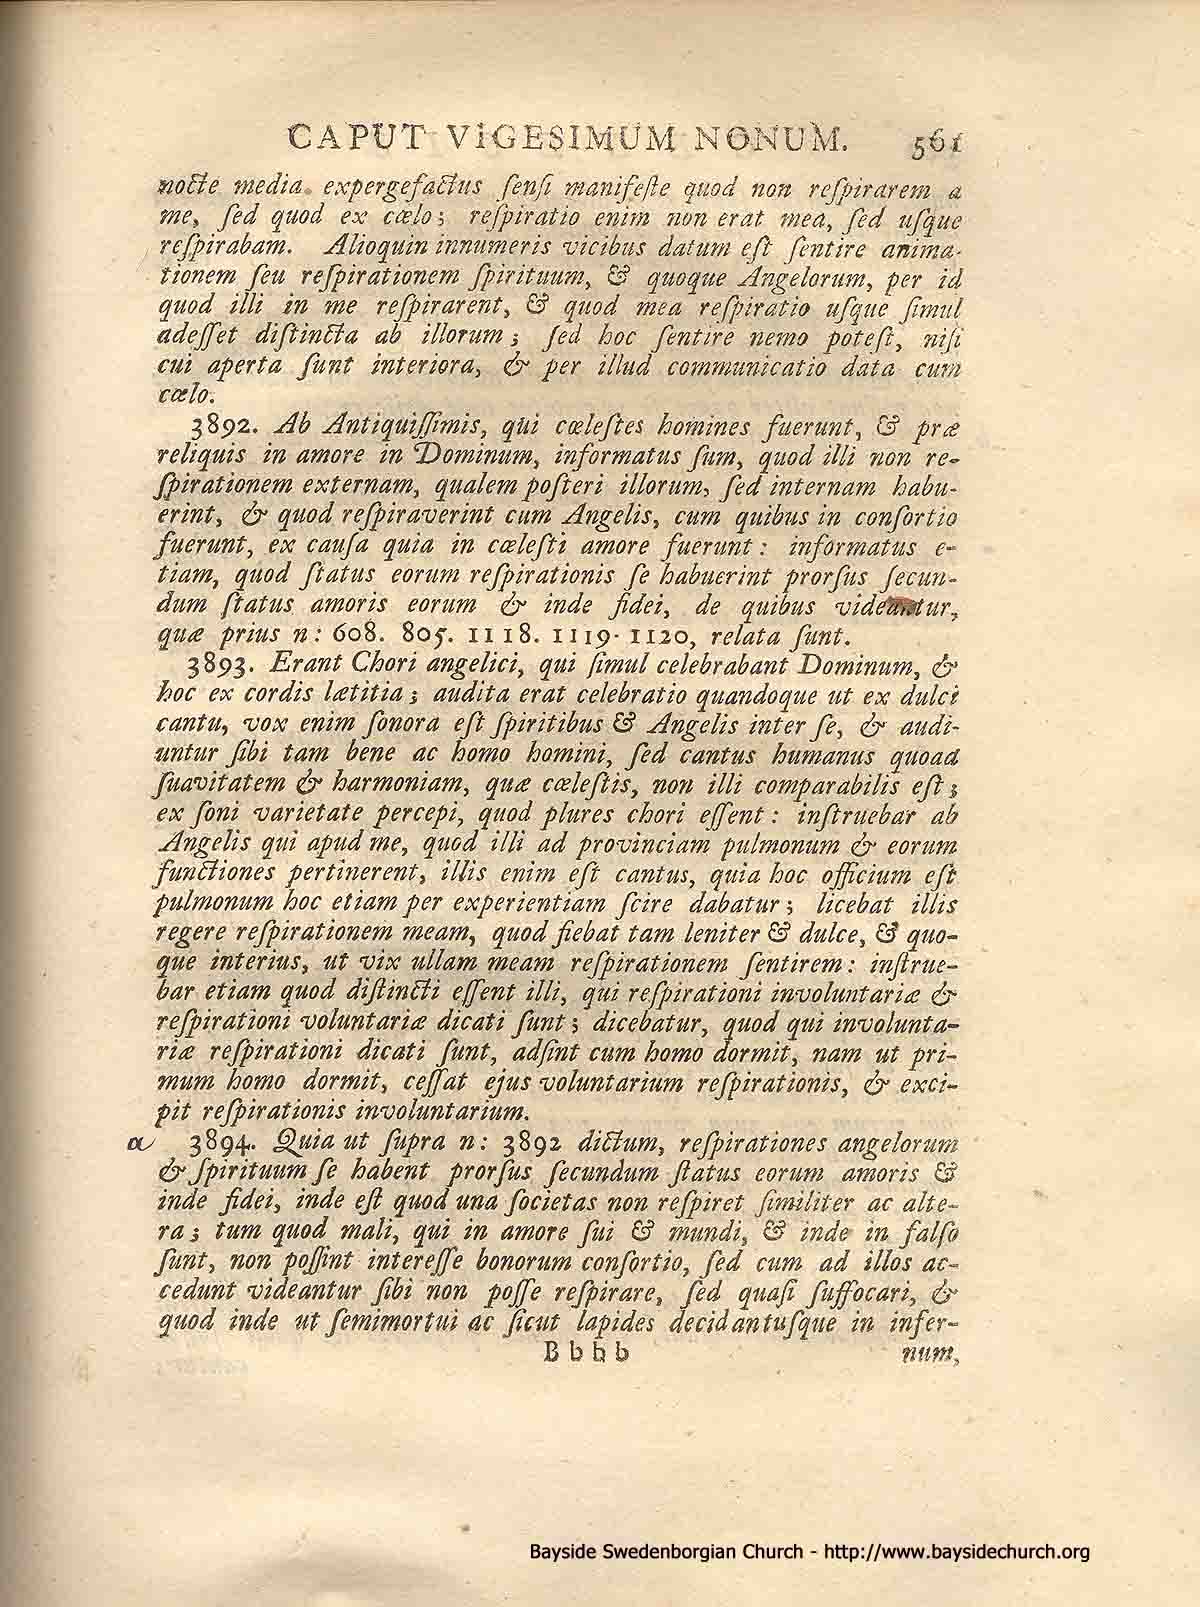 CAPUT VIGESIMUM NONUM. 561
nocte media expergefactus ſenſi manifeſte quod non reſpirarem a
me, ſed quod ex cœlo; reſpiratio enim non erat mea, ſed uſque
reſpirabam. Alioquin innumeris vicibus datum eſt ſentire anima-
tionem ſeu reſpirationem ſpirituum, & quoque Angelorum, per id
quod illi in me reſpirarent, & quod mea reſpiratio uſque ſimul
adeſſet diſtincta ab illorum; ſed hoc ſentire nemo poteſt, niſi
cui aperta ſunt interiora, & per illud communicatio data cum
cœlo.
3892. Ab Antiquiſſimis, qui cœleſtes homines fuerunt, & præ
reliquis in amore in Dominum, informatus ſum, quod illi non re-
ſpirationem externam, qualem poſteri illorum, ſed internam habu-
erint, & quod reſpiraverint cum Angelis, cum quibus in conſortio
fuerunt, ex cauſa quia in cœleſti amore fuerunt: informatus e-
tiam, quod ſtatus eorum reſpirationis ſe habuerint prorſus ſecun-
dum ſtatus amoris eorum & inde fidei, de quibus videantur,
quæ prius n: 608. 805. 1118. 1119. 1120, relata ſunt.
3893. Erant Chori angelici, qui ſimul celebrabant Dominum, &
hoc ex cordis lætitia; audita erat celebratio quandoque ut ex dulci
cantu, vox enim ſonora eſt ſpiritibus & Angelis inter ſe, & audi-
untur ſibi tam bene ac homo homini, ſed cantus humanus quoad
ſuavitatem & harmoniam, quæ cœleſtis, non illi comparabilis eſt;
ex ſoni varietate percepi, quod plures chori eſſent: inſtruebar ab
Angelis qui apud me, quod illi ad provinciam pulmonum & eorum
functiones pertinerent, illis enim eſt cantus, quia hoc officium eſt
pulmonum hoc etiam per experientiam ſcire dabatur; licebat illis
regere reſpirationem meam, quod fiebat tam leniter & dulce, & quo-
que interius, ut vix ullam meam reſpirationem ſentirem: inſtrue-
bar etiam quod diſtincti eſſent illi, qui reſpirationi involuntariæ &
reſpirationi voluntariæ dicati ſunt; dicebatur, quod qui involunta-
riæ reſpirationi dicati ſunt, adſint cum homo dormit, nam ut pri-
mum homo dormit, ceſſat ejus voluntarium reſpirationis, & exci-
pit reſpirationis involuntarium.
a 3894. Quia ut ſupra n: 3892 dictum, reſpirationes angelorum
& ſpirituum ſe habent prorſus ſecundum ſtatus eorum amoris &
inde fidei, inde eſt quod una ſocietas non reſpiret ſimiliter ac alte-
ra; tum quod mali, qui in amore ſui & mundi, & inde in falſo
ſunt, non poſſint intereſſe bonorum conſortio, ſed cum ad illos ac-
cedunt videantur ſibi non poſſe reſpirare, ſed quaſi ſuffocari, &
quod inde ut ſemimortui ac ſicut lapides decidantuſque in infer-
Bbbb num,
Bayside Swedenborgian Church - http://www.baysidechurch.org